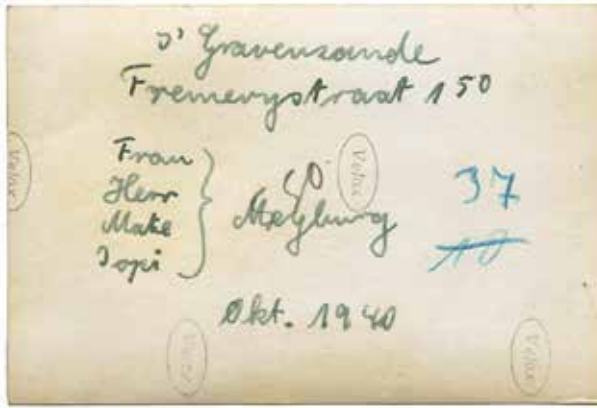 s' Gravenzande
Fremerystraat 150
Frau
Herr
Make
Jopi
Meyburg
40
37
10
Okt. 1940
Velox
Velox
Velox
Velox